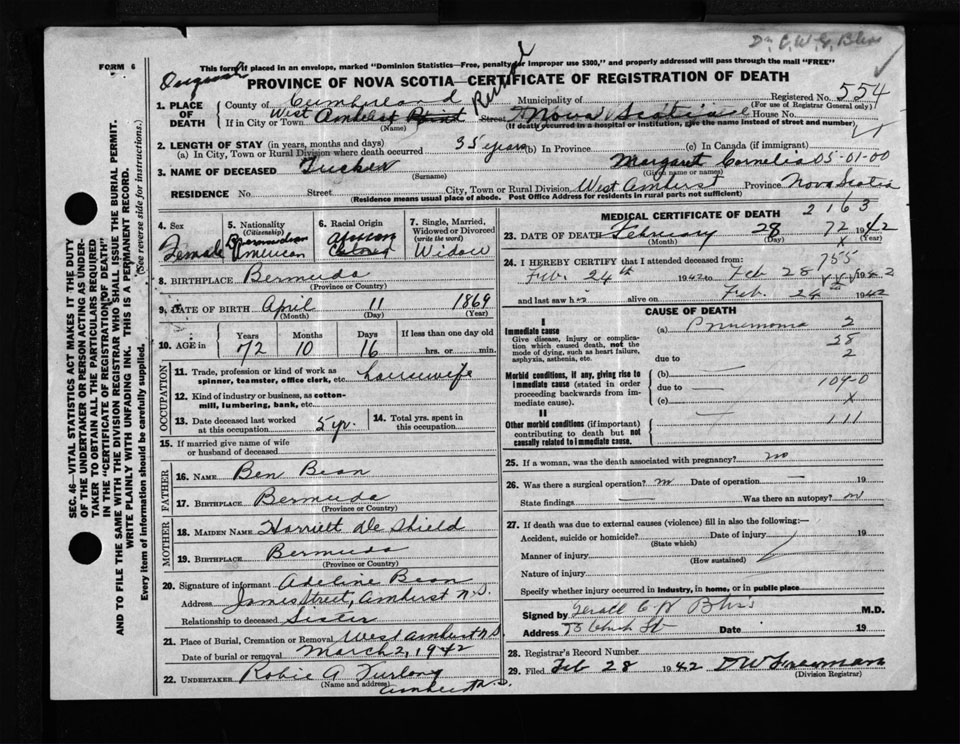 Dr. C. W. G. Bliss
FORM 6
This form if placed in an envelope, marked "Dominion Statistics—Free, penalty for improper use $300," and properly addressed will pass through the mail "FREE"
Original
PROVINCE OF NOVA SCOTIA—CERTIFICATE OF REGISTRATION OF DEATH
Registered No. 554
(For use of Registrar General only)
1. PLACE OF DEATH
County of Cumberland
Rural
Municipality of
If in City or Town West Amherst
(Name)
Street Nova Scotia House No.
(If death occurred in a hospital or institution, give the name instead of street and number)
2. LENGTH OF STAY (in years, months and days)
(a) In City, Town or Rural Division where death occurred 35 years (b) In Province (c) In Canada (if immigrant)
3. NAME OF DECEASED Tucker Margaret Cornelia 05-01-00
(Surname) (Given name or names)
RESIDENCE No. Street City, Town or Rural Division West Amherst Province Nova Scotia
(Residence means usual place of abode. Post Office Address for residents in rural parts not sufficient)
4. Sex
Female
5. Nationality (Citizenship)
Bermudian
American
6. Racial Origin
African
Colored
7. Single, Married, Widowed or Divorced (write the word)
Widow
8. BIRTHPLACE Bermuda
(Province or Country)
9. DATE OF BIRTH April 11 1869
(Month) (Day) (Year)
10. AGE in
Years Months Days If less than one day old
72 10 16 hrs. or min.
OCCUPATION
11. Trade, profession or kind of work as spinner, teamster, office clerk, etc. housewife
12. Kind of industry or business, as cotton-mill, lumbering, bank, etc.
13. Date deceased last worked at this occupation 5 yr.
14. Total yrs. spent in this occupation
15. If married give name of wife or husband of deceased
FATHER
16. NAME Ben Bean
17. BIRTHPLACE Bermuda
(Province or Country)
MOTHER
18. MAIDEN NAME Harriett De Shield
19. BIRTHPLACE Bermuda
(Province or Country)
20. Signature of informant Adeline Bean
Address James Street, Amherst N.S.
Relationship to deceased Sister
21. Place of Burial, Cremation or Removal West Amherst N.S.
Date of burial or removal March 2, 1942
22. UNDERTAKER Robie A Furlong
(Name and address)
Amherst N.S.
MEDICAL CERTIFICATE OF DEATH
2163
23. DATE OF DEATH February 28 72 1942
(Month) (Day) X (Year)
24. I HEREBY CERTIFY that I attended deceased from:
755
Feb. 24th 1942 to Feb 28 1942
and last saw h alive on Feb. 24 1942
CAUSE OF DEATH
I
Immediate cause
Give disease, injury or complication which caused death, not the mode of dying, such as heart failure, asphyxia, asthenia, etc.
(a) Pneumonia 2
28
due to 2
Morbid conditions, if any, giving rise to immediate cause (stated in order proceeding backwards from immediate cause).
(b)
due to 109-0
(c) X
II
Other morbid conditions (if important) contributing to death but not causally related to immediate cause.
111
25. If a woman, was the death associated with pregnancy? no
26. Was there a surgical operation? no Date of operation — 19
State findings — Was there an autopsy? no
27. If death was due to external causes (violence) fill in also the following:—
Accident, suicide or homicide? Date of injury 19
(State which)
Manner of injury
(How sustained)
Nature of injury
Specify whether injury occurred in industry, in home, or in public place
Signed by Gerald C W Bliss M.D.
Address Church St Date 19
28. Registrar's Record Number
29. Filed Feb 28 1942 DW Freeman
(Division Registrar)
SEC. 46—VITAL STATISTICS ACT MAKES IT THE DUTY
OF THE UNDERTAKER OR PERSON ACTING AS UNDERTAKER
TO OBTAIN ALL THE PARTICULARS REQUIRED
IN THE "CERTIFICATE OF REGISTRATION OF DEATH"
AND TO FILE THE SAME WITH THE DIVISION REGISTRAR WHO SHALL ISSUE THE BURIAL PERMIT.
WRITE PLAINLY WITH UNFADING INK. THIS IS A PERMANENT RECORD.
Every item of information should be carefully supplied. (See reverse side for instructions.)